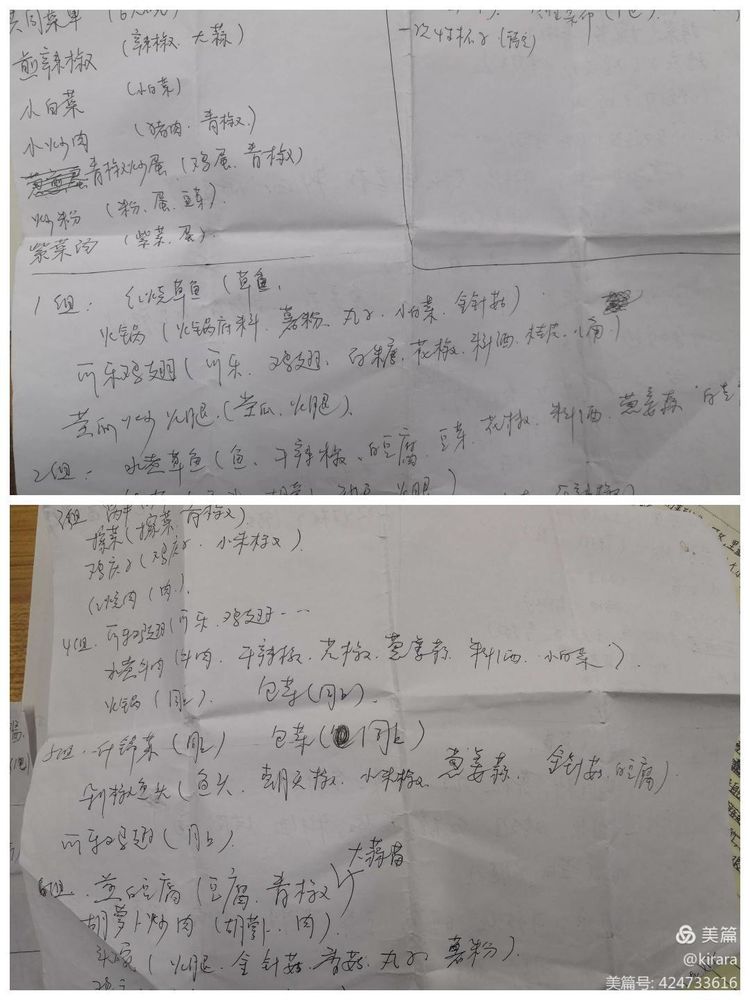 共同菜单
煎辣椒 (辣椒、大蒜)
小白菜 (小白菜)
小炒肉 (猪肉、青椒)
青椒炒蛋 (鸡蛋、青椒)
炒粉 (粉、蛋、豆芽)
紫菜汤 (紫菜、蛋)
一次性杯子
1组: 红烧草鱼 (草鱼、
火锅 (火锅底料、薯粉、丸子、小白菜、金针菇)
可乐鸡翅 (可乐、鸡翅、白糖、花椒、料酒、桂皮、八角)
黄瓜炒火腿 (黄瓜、火腿)
2组: 水煮草鱼 (鱼、干辣椒、白豆腐、豆芽、花椒、料酒、葱姜蒜
火腿)
3组
擦菜 (擦菜、青椒)
小米椒)
红烧肉 (肉)
4组. 可乐鸡翅 (可乐、鸡翅……
水煮牛肉 (牛肉、干辣椒、花椒、葱姜蒜、料酒、小白菜)
火锅 (同上) 包菜 (同上)
5组. 什锦菜 (同上) 包菜 (同上)
剁椒鱼头 (鱼头、朝天椒、小米椒、葱姜蒜、金针菇、白豆腐)
可乐鸡翅 (同上)
大蒜苗
6组. 煎白豆腐 (豆腐、青椒)
胡萝卜炒肉 (胡萝卜、肉)
(火腿、金针菇、香菇、丸子、薯粉)
美篇
@kirara
美篇号: 424733616